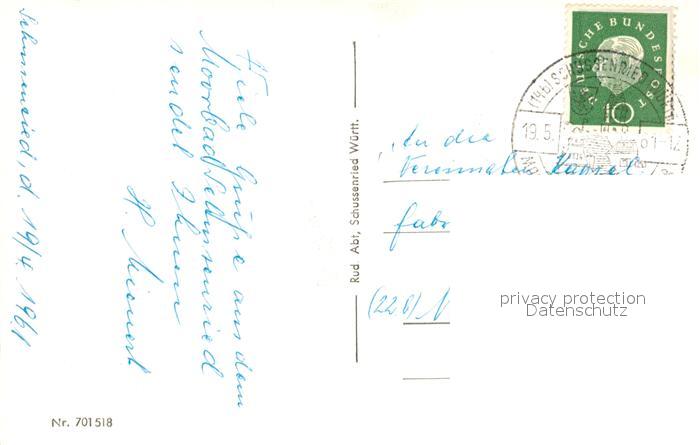 Schussenried, d. 19/4. 1961
Viele Grüße aus dem
Moorbad Schussenried
sendet Ihnen
H.
Nr. 701518
Rud. Abt, Schussenried Württ.
DEUTSCHE BUNDESPOST
10
(14b) SCHUSSENRIED
19.5. 61-12
An die
Vereinigten
fabr
(22b)
privacy protection
Datenschutz